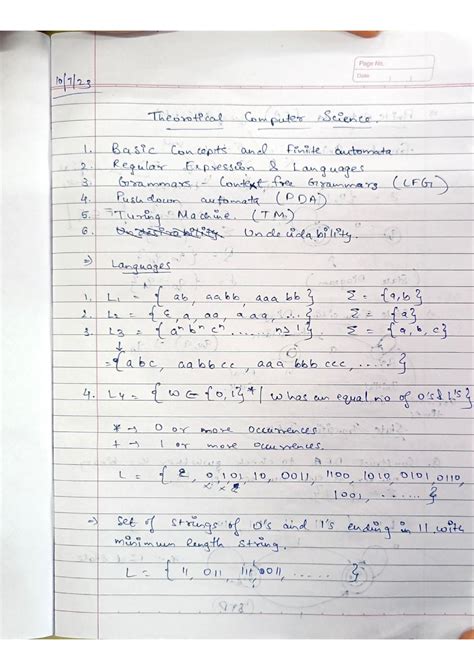 Page No.
Date
10/7/23
Theorotical Computer Science.
1. Basic Concepts and Finite automata
2. Regular Expression & Languages
3. Grammars - Context free Grammars (CFG)
4. Pushdown automata (PDA)
5. Turing Machine. (TM)
6. Undecidability.
⇒ Languages
1. L₁ = { ab, aabb, aaabb } Σ = {a,b}
2. L₂ = { ε, a, aa, aaa, ... } Σ = {a}
3. L₃ = { aⁿ bⁿ cⁿ ..... n≥1 } Σ = {a, b, c}
↓
= { abc, aabbcc, aaabbbccc, ..... }
4. L₄ = { w ∈ {0,1}* | w has an equal no of 0's & 1's }
* → 0 or more occurrences
+ → 1 or more occurrences.
L = { ε, 0,101, 10, 0011, 1100, 1010, 0101, 0110,
1001, ...... }
⇒ Set of strings of 0's and 1's ending in 11 with
minimum length string.
L = { 11, 011, 111, 0011, ..... }